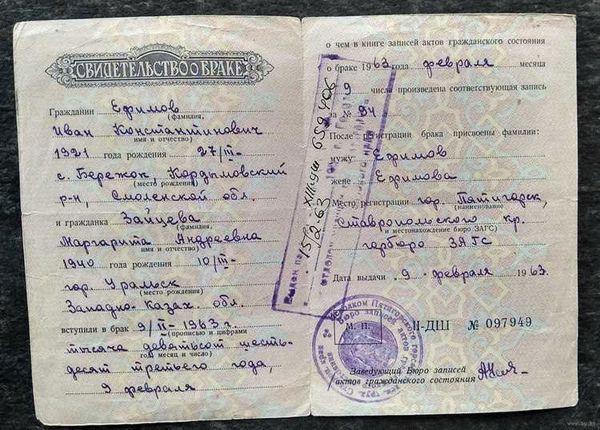 СВИДЕТЕЛЬСТВО О БРАКЕ
Гражданин Ефимов
(фамилия,
Иван Константинович
имя и отчество)
1921 года рождения 27/III-
с. Бережок, Кардымовский
(место рождения)
р-н, Смоленской обл.
и гражданка Зайцева
(фамилия,
Маргарита Андреевна
имя и отчество)
1940 года рождения 10/III-
гор. Уральск
(место рождения)
Западно-Казах. обл.
вступили в брак 9/II-1963 г.
(прописью и цифрами
тысяча девятьсот шесть-
год месяц и число)
десят третьего года,
9 февраля
о чем в книге записей актов гражданского состояния
о браке 1963 года февраля месяца
9 числа произведена соответствующая запись
за № 94
После регистрации брака присвоены фамилии:
мужу Ефимов
жене Ефимова
Место регистрации гор. Пятигорск,
(наименование
Ставропольского кр.
и местонахождение бюро ЗАГС)
горбюро ЗАГС
Дата выдачи „9„ февраля 1963.
М. П.
II-ДШ № 097949
Заведующий Бюро записей
актов гражданского состояния
15/2-63